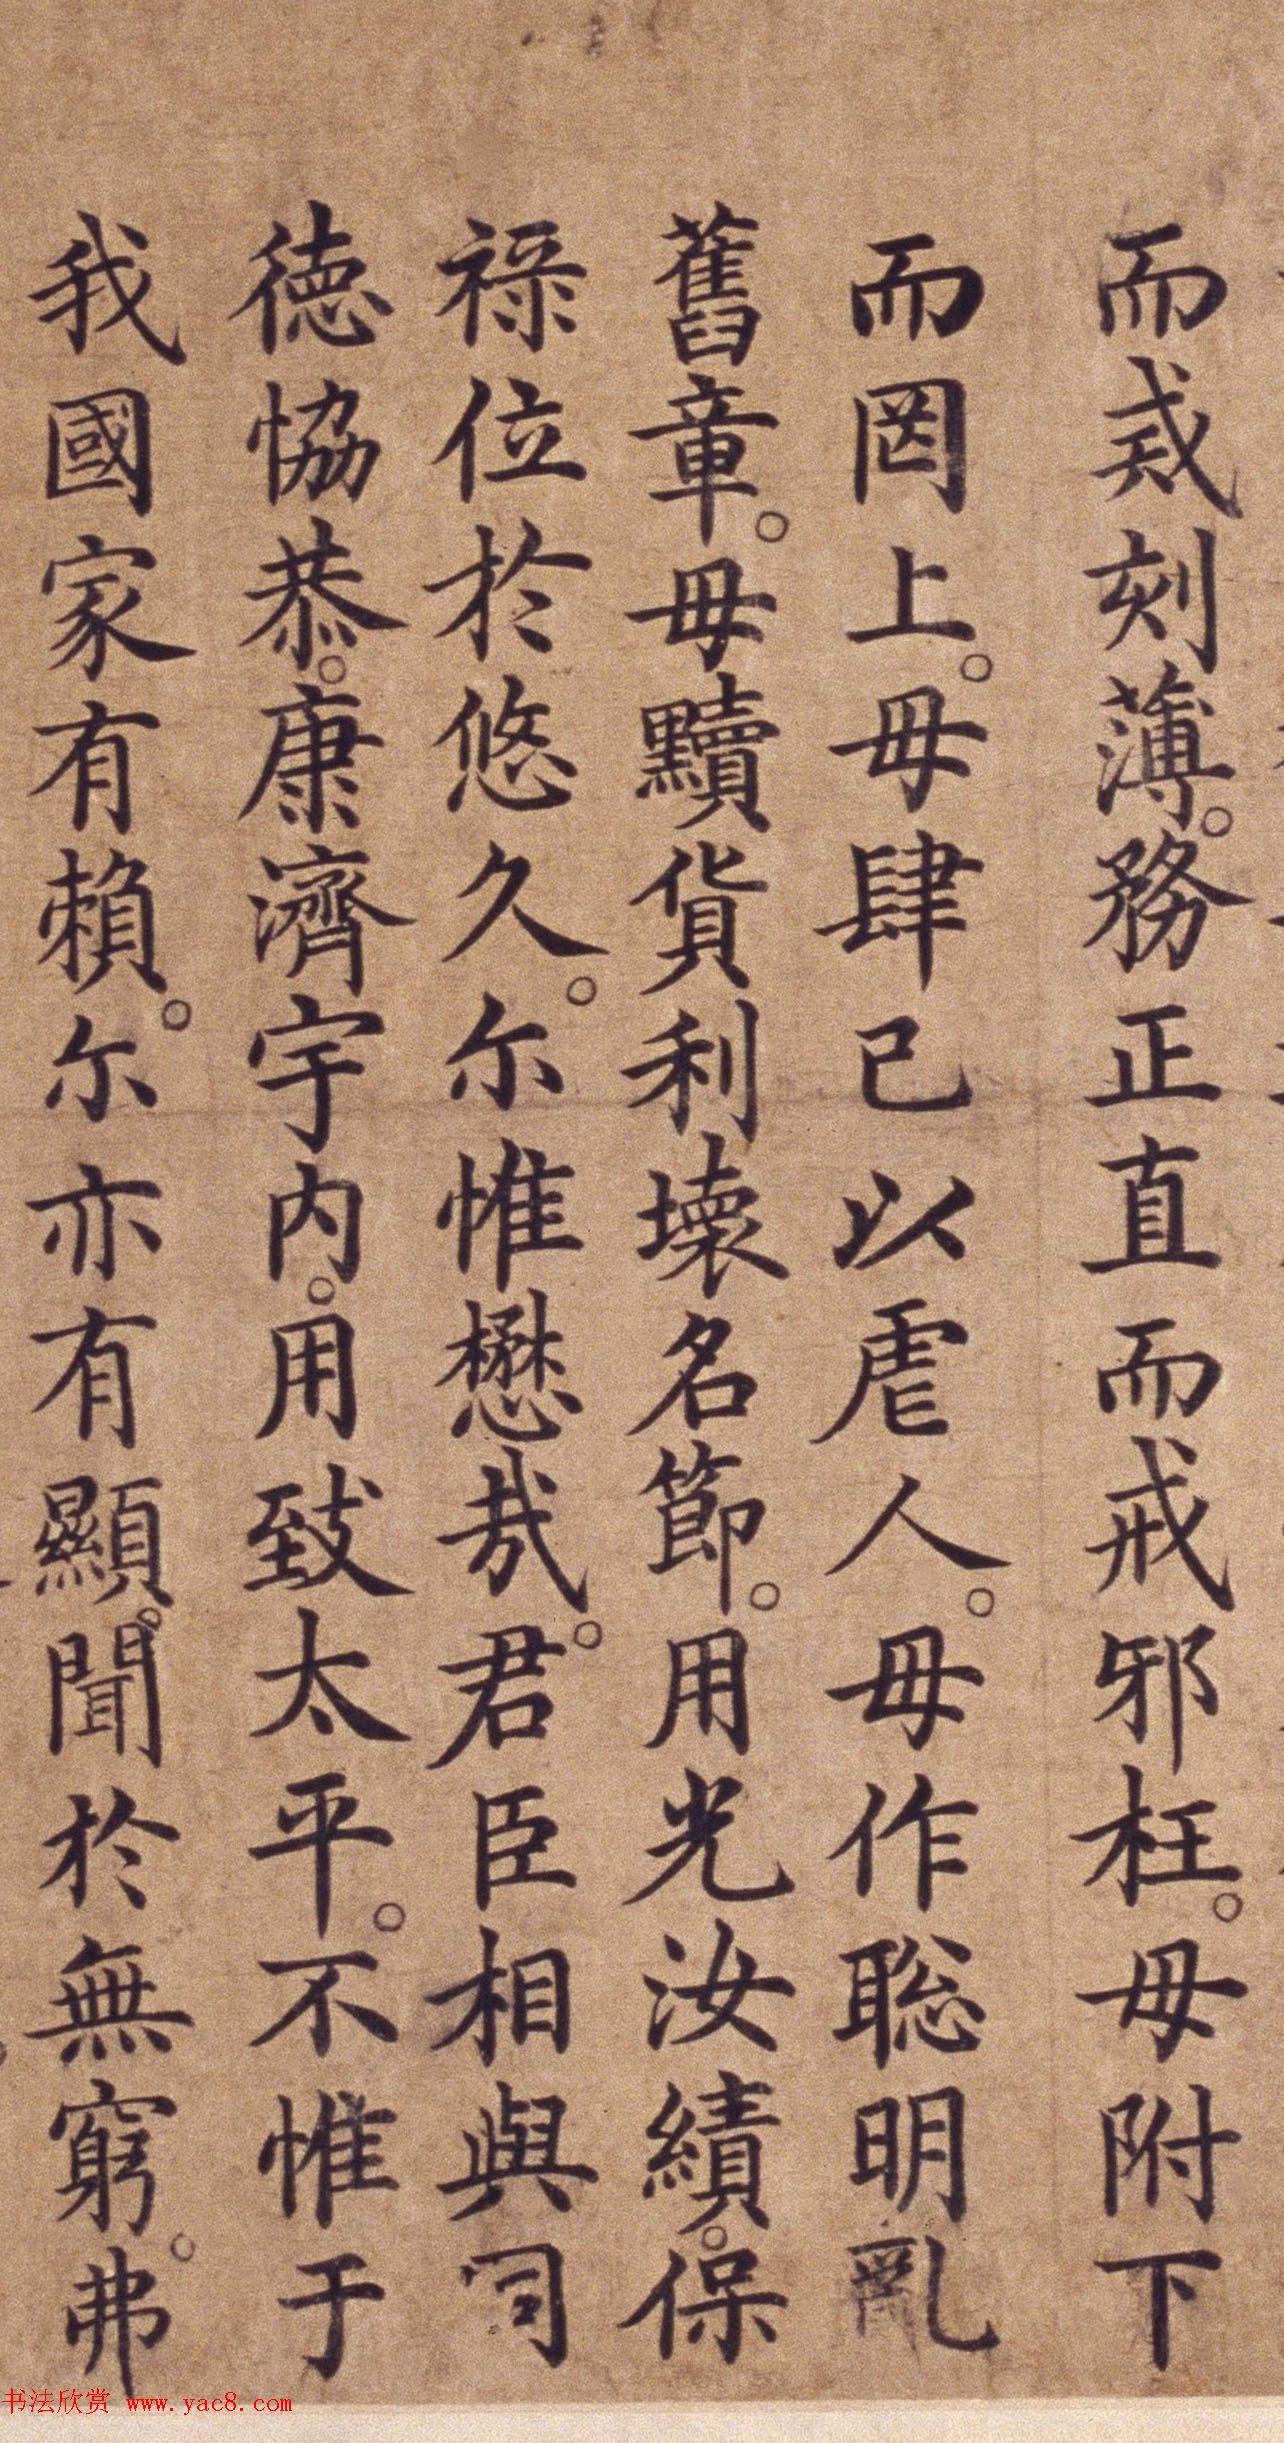 而戒刻薄。務正直而戒邪枉。毋附下
而罔上。毋肆己以虐人。毋作聪明亂
舊章。毋黷貨利壞名節。用光汝績。保
禄位於悠久。尔惟懋哉。君臣相與同
徳恊恭。康濟宇内。用致太平。不惟于
我國家有賴。尔亦有顯聞於無窮。弗
书法欣赏 www.yac8.com